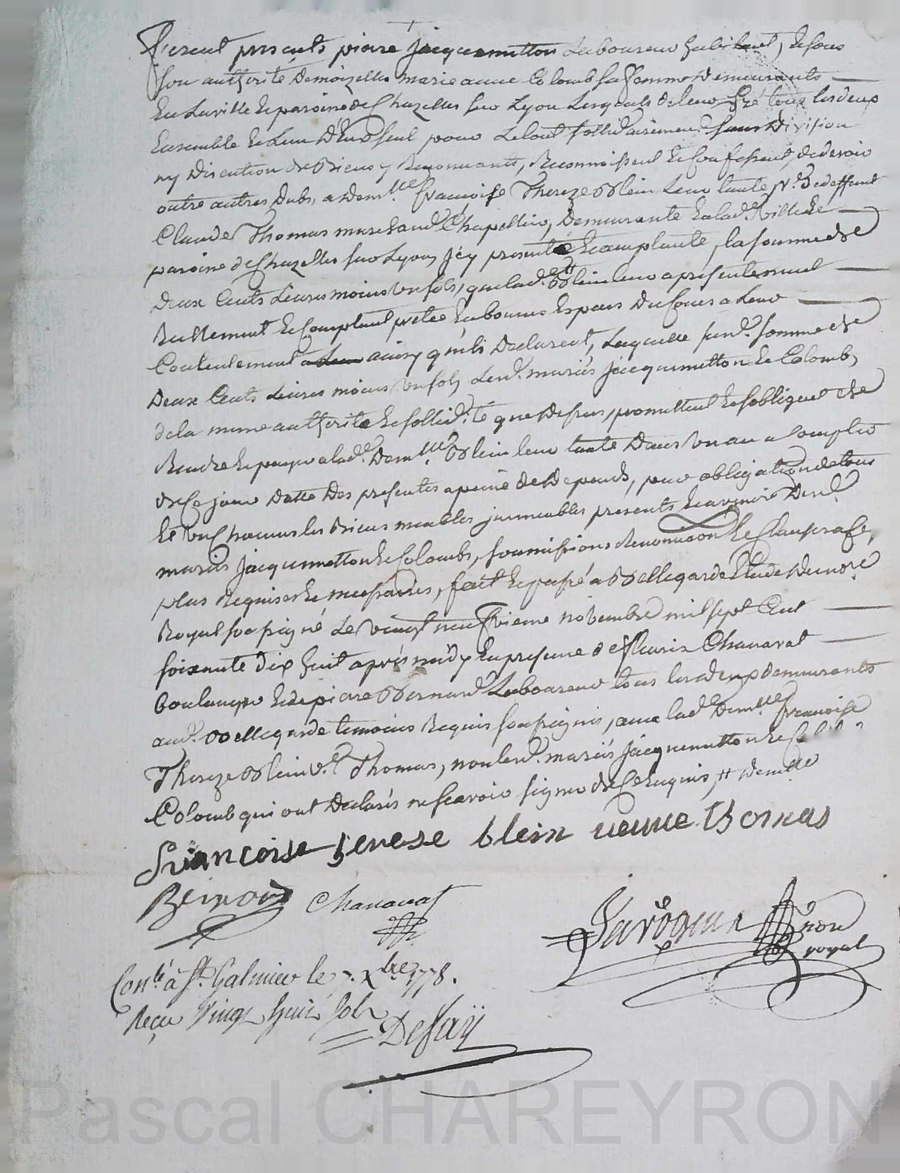 furent presents pierre jacquemetton Laboureur habitant, & sous
son authorité demoizelle marie anne Colomb sa femme Demeurants
En La ville & paroisse de Chazelles sur Lyon Lesquels de leur gré tous les deux
Ensemble & Lun D'Eux seul pour Le tout sollidairement sans Division
ny Discution de Biens y Renonceants, Reconnoissent & Confessent, de devoir
outre autres dubs, a Dem.lle françoise Thereze Blein Leur tante v.e de deffunt
Claude Thomas marchand Chapellier, Demeurante a lad.e Ville &
paroisse de Chazelles sur Lyon, jcy presente & acceptante, la somme de
Deux Cents Livres moins un sols, que lad.e Blein leur a presentement
Reellement & Comptant pretée En bonnes Especes Du Cours a Leur
Contentement ainsy qu'ils Declarent, Laquelle sus.d. somme de
Deux Cents Livres moins un sols, Les.d. mariés jacquemetton & Colomb,
de la meme authorité & sollid.té que Dessus, promettent & s'obligent de
Rendre & payer a lad.e Dem.lle Blein leur tante Dans un an a Compter
de Ce jour Datte Des presentes a peine de Depends, pour obligation de tous
Et uns Chacuns les Biens meubles jmmeubles presents & avenir Desd.
mariés jacquemetton & Colomb, soumissions Renonciaon & Clauses a ce,
plus Requises & necessaires, fait & passé a Bellegarde Etude Du not.re
Royal soussigné Le vingt neuvieme novembre mil sept Cent
soixante dix huit après midy En presence de Chanavat
boulanger & de pierre Bernard Laboureur tous les deux demeurants
aud. Bellegarde temoins Requis soussignés, avec lad.e Dem.lle françoise
Thereze Blein v.e Thomas, non lesd. mariés jacquemetton &
Colomb qui ont Declarés ne scavoir signer de Ce Enquis, # dem.lle
françoise terese blein veuve thomas
Bernard Chanavat
royal
Con.lé à S.t Galmier le 7. Xbre 1778.
Reçu Vingt huit sols
Defaÿ
Pascal CHAREYRON